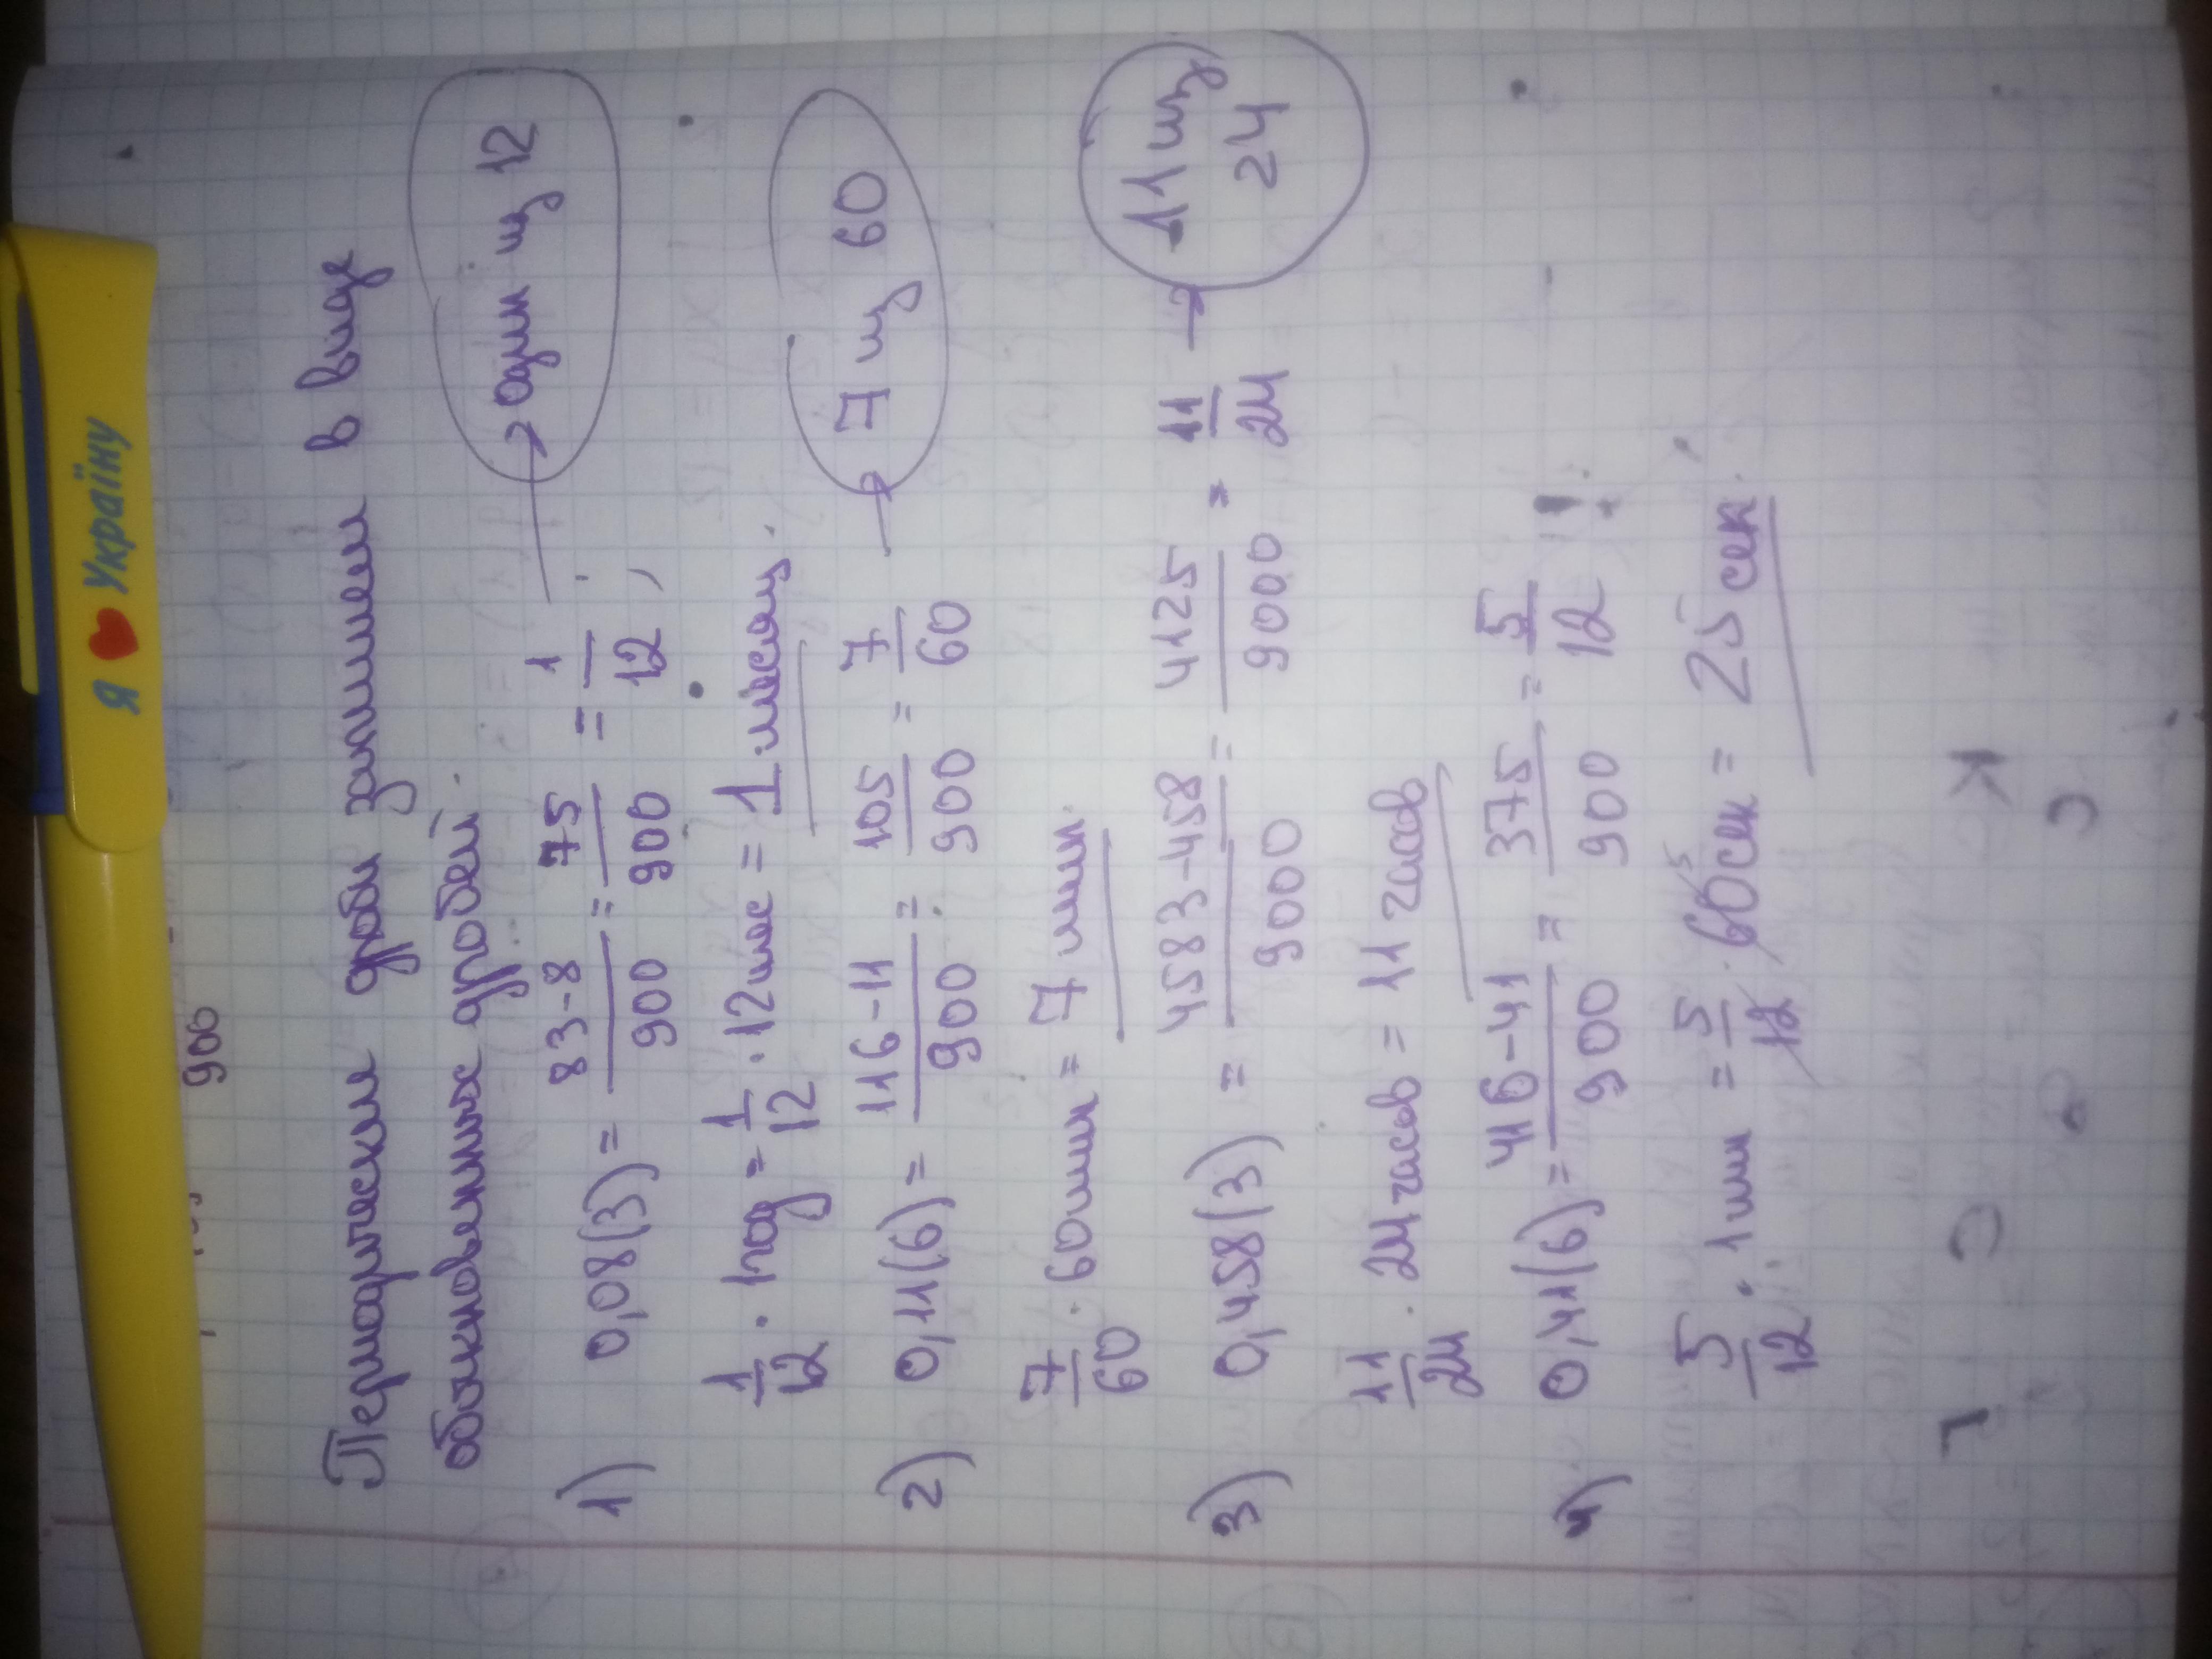 Я ❤ Україну
900
Периодические дроби запишем в виде
обыкновенных дробей.
1) 0,08(3) = 83-8/900 = 75/900 = 1/12, → один из 12
1/12 · 1год = 1/12 · 12мес = 1 месяц.
2) 0,11(6) = 116-11/900 = 105/900 = 7/60 → 7 из 60
7/60 · 60мин = 7 мин.
3) 0,458(3) = 4583-458/9000 = 4125/9000 = 11/24 → 11 из 24
11/24 · 24часов = 11 часов
4) 0,41(6) = 416-41/900 = 375/900 = 5/12 !
5/12 · 1мин = 5/12 · 60сек = 25 сек.
5